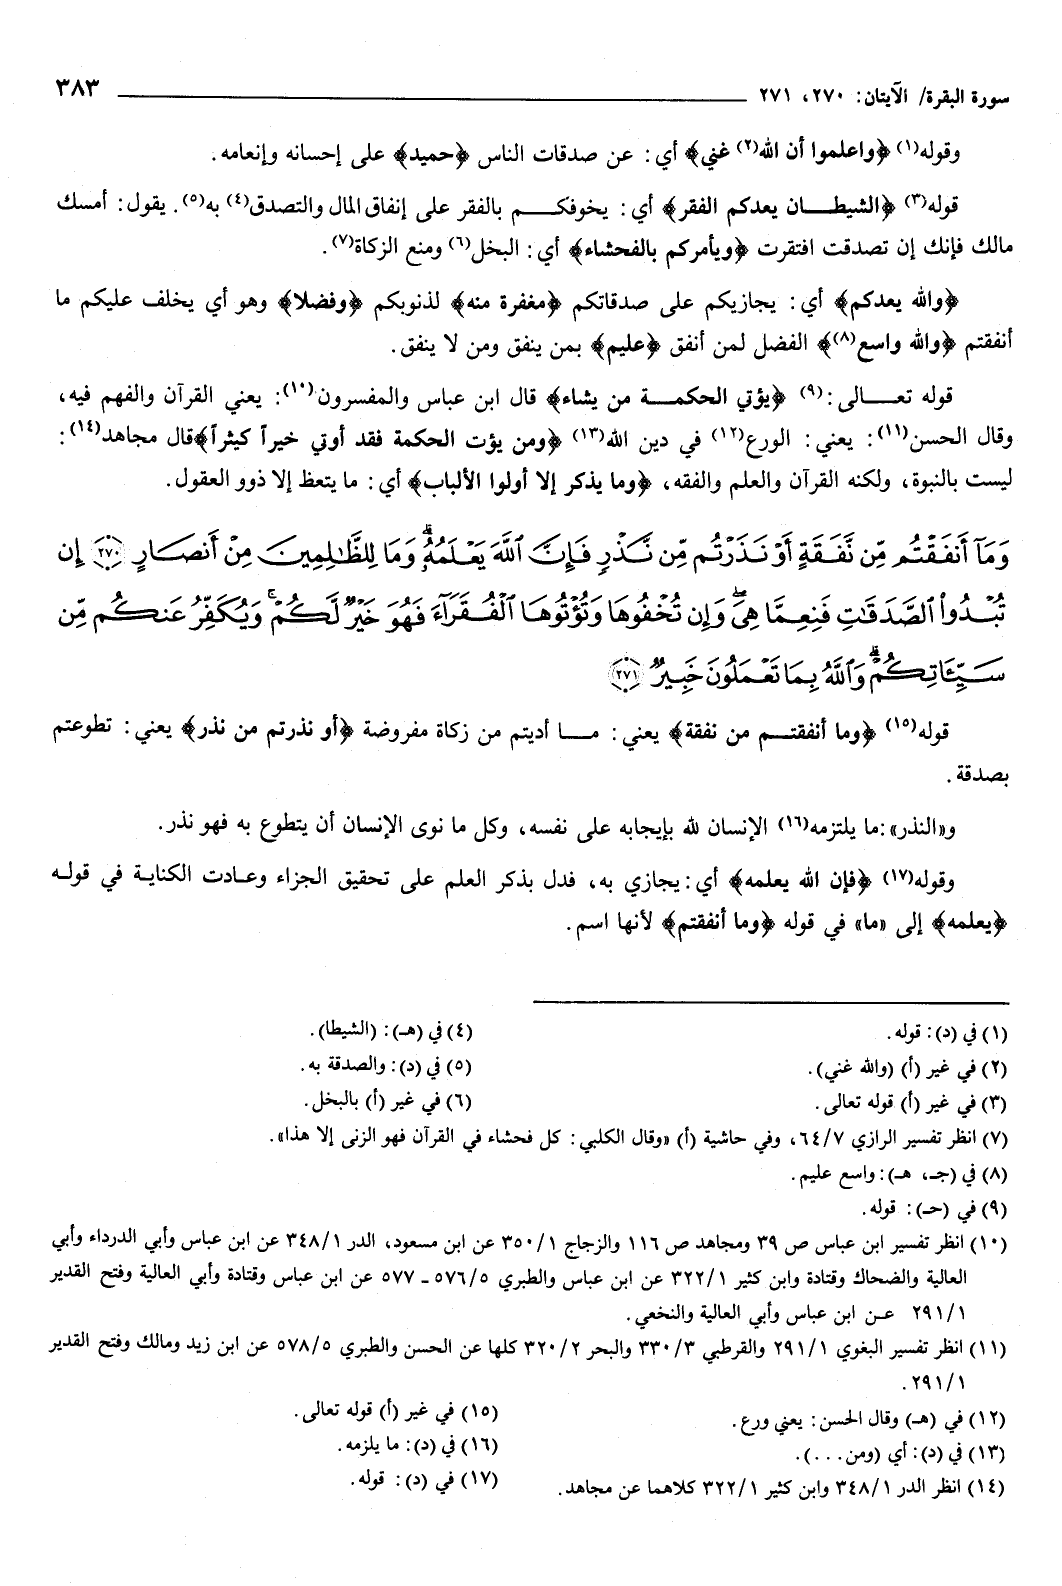 سورة البقرة/ الآيتان: ٢٧٠، ٢٧١ ٣٨٣
وقوله(١) ﴿واعلموا أن الله(٢) غني﴾ أي: عن صدقات الناس ﴿حميد﴾ على إحسانه وإنعامه.
قوله(٣) ﴿الشيطان يعدكم الفقر﴾ أي: يخوفكم بالفقر على إنفاق المال والتصدق(٤) به(٥). يقول: أمسك
مالك فإنك إن تصدقت افتقرت ﴿ويأمركم بالفحشاء﴾ أي: البخل(٦) ومنع الزكاة(٧).
﴿والله يعدكم﴾ أي: يجازيكم على صدقاتكم ﴿مغفرة منه﴾ لذنوبكم ﴿وفضلا﴾ وهو أي يخلف عليكم ما
أنفقتم ﴿والله واسع(٨)﴾ الفضل لمن أنفق ﴿عليم﴾ بمن ينفق ومن لا ينفق.
قوله تعالى:(٩) ﴿يؤتي الحكمة من يشاء﴾ قال ابن عباس والمفسرون(١٠): يعني القرآن والفهم فيه،
وقال الحسن(١١): يعني: الورع(١٢) في دين الله(١٣) ﴿ومن يؤت الحكمة فقد أوتي خيراً كثيراً﴾قال مجاهد(١٤):
ليست بالنبوة، ولكنه القرآن والعلم والفقه، ﴿وما يذكر إلا أولوا الألباب﴾ أي: ما يتعظ إلا ذوو العقول.
وَمَآ أَنفَقْتُم مِّن نَّفَقَةٍ أَوْ نَذَرْتُم مِّن نَّذْرٍ فَإِنَّ ٱللَّهَ يَعْلَمُهُۥۗ وَمَا لِلظَّٰلِمِينَ مِنْ أَنصَارٍ ٢٧٠ إِن
تُبْدُوا۟ ٱلصَّدَقَٰتِ فَنِعِمَّا هِىَۖ وَإِن تُخْفُوهَا وَتُؤْتُوهَا ٱلْفُقَرَآءَ فَهُوَ خَيْرٌ لَّكُمْۚ وَيُكَفِّرُ عَنكُم مِّن
سَيِّـَٔاتِكُمْۗ وَٱللَّهُ بِمَا تَعْمَلُونَ خَبِيرٌ ٢٧١
قوله(١٥) ﴿وما أنفقتم من نفقة﴾ يعني: ما أديتم من زكاة مفروضة ﴿أو نذرتم من نذر﴾ يعني: تطوعتم
بصدقة.
و«النذر»:ما يلتزمه(١٦) الإنسان لله بإيجابه على نفسه، وكل ما نوى الإنسان أن يتطوع به فهو نذر.
وقوله(١٧) ﴿فإن الله يعلمه﴾ أي:يجازي به، فدل بذكر العلم على تحقيق الجزاء وعادت الكناية في قوله
﴿يعلمه﴾ إلى «ما» في قوله ﴿وما أنفقتم﴾ لأنها اسم.
(١) في (د): قوله.
(٢) في غير (أ) (والله غني).
(٣) في غير (أ) قوله تعالى.
(٤) في (هـ): (الشيطا).
(٥) في (د): والصدقة به.
(٦) في غير (أ) بالبخل.
(٧) انظر تفسير الرازي ٧/٦٤، وفي حاشية (أ) «وقال الكلبي: كل فحشاء في القرآن فهو الزنى إلا هذا».
(٨) في (جـ، هـ): واسع عليم.
(٩) في (حـ): قوله.
(١٠) انظر تفسير ابن عباس ص ٣٩ ومجاهد ص ١١٦ والزجاج ١/٣٥٠ عن ابن مسعود، الدر ١/٣٤٨ عن ابن عباس وأبي الدرداء وأبي
العالية والضحاك وقتادة وابن كثير ١/٣٢٢ عن ابن عباس والطبري ٥/٥٧٦ - ٥٧٧ عن ابن عباس وقتادة وأبي العالية وفتح القدير
١/٢٩١ عن ابن عباس وأبي العالية والنخعي.
(١١) انظر تفسير البغوي ١/٢٩١ والقرطبي ٣/٣٣٠ والبحر ٢/٣٢٠ كلها عن الحسن والطبري ٥/٥٧٨ عن ابن زيد ومالك وفتح القدير
١/٢٩١.
(١٢) في (هـ) وقال الحسن: يعني ورع.
(١٣) في (د): أي (ومن...).
(١٤) انظر الدر ١/٣٤٨ وابن كثير ١/٣٢٢ كلاهما عن مجاهد.
(١٥) في غير (أ) قوله تعالى.
(١٦) في (د): ما يلزمه.
(١٧) في (د): قوله.